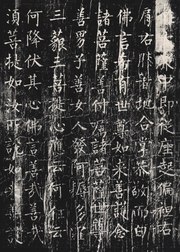 在大衆中即從座起偏袒右
肩右膝著地合掌恭敬而白
佛言希有世尊如來善護念
諸菩薩善付囑諸菩薩世尊
善男子善女人發阿耨多羅
三藐三菩提心應云何住云
何降伏其心佛言善哉善哉
須菩提如汝所說如來善護